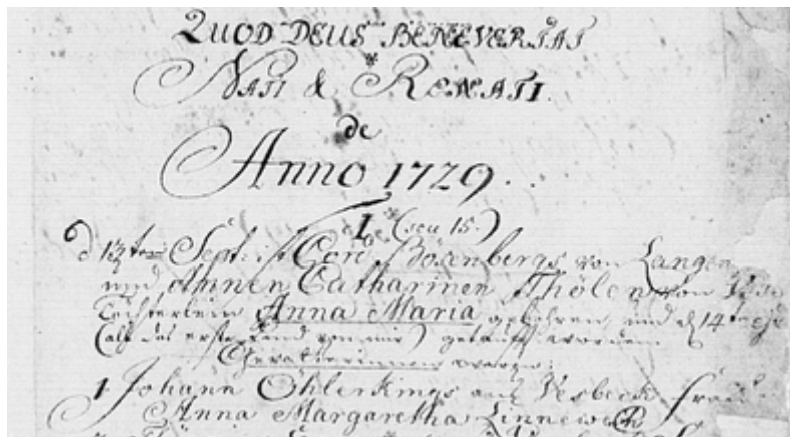 QUOD DEUS BENEVERTAT
NATI & RENATI.
de
Anno 1729.
I. (seu 15.)
d 13ten Sept: ist Cord Bösenbergs von Langen
und Annen Catharinen Thölen von
Töchterlein Anna Maria gebohren, und d 14ten
(als das erste von mir) getaufft worden
Gevatterinnen waren:
1. Johann Öhlerkings aus Vesbeck Frau
Anna Margaretha Linnewehr